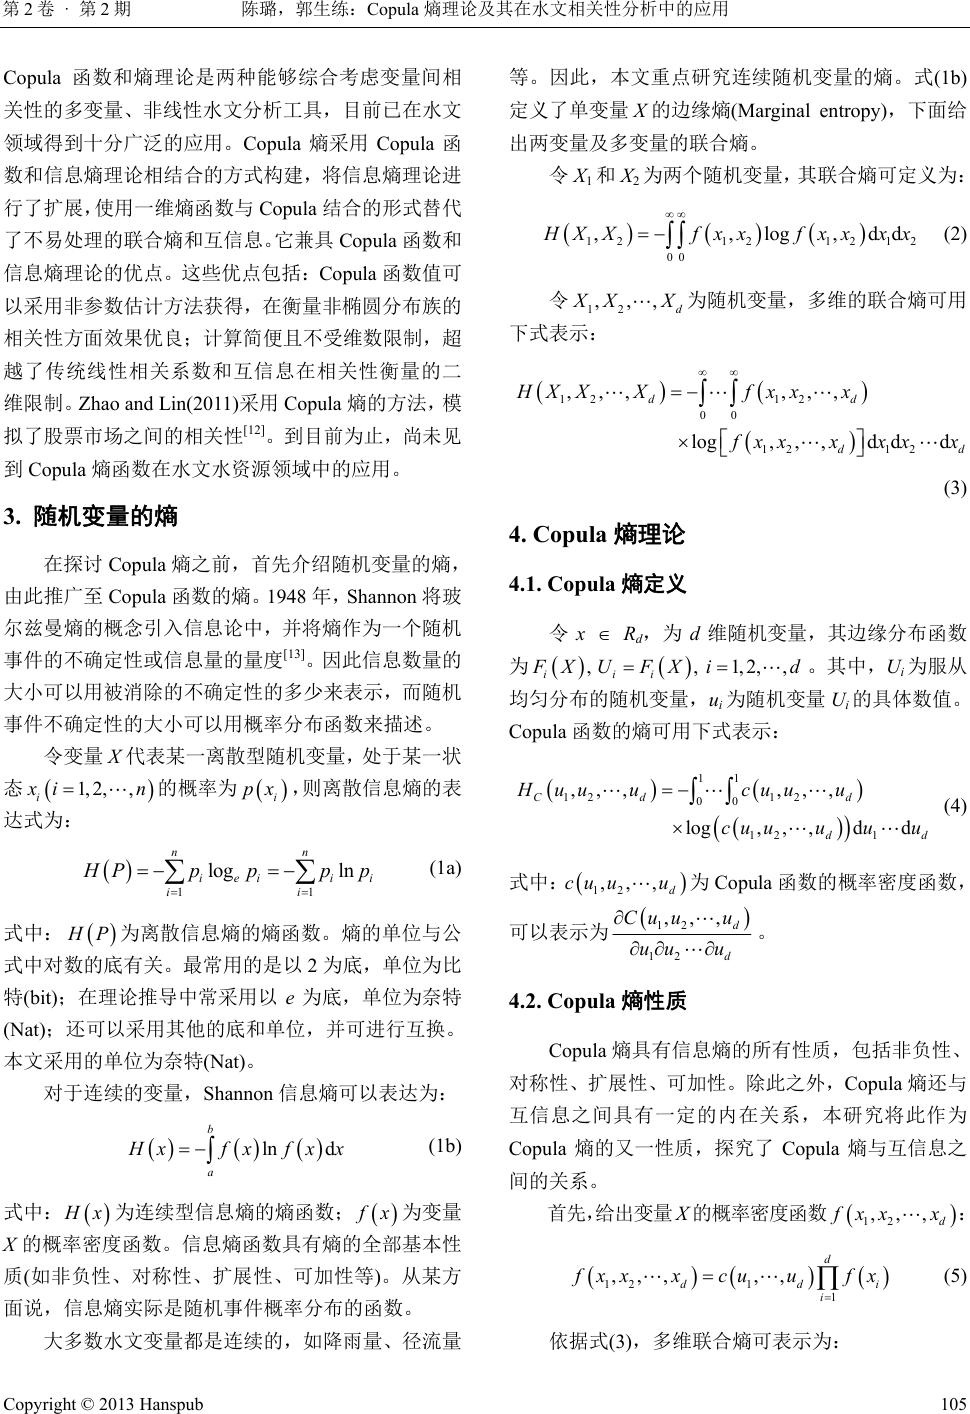 第 2 卷 · 第 2 期 陈璐，郭生练：Copula 熵理论及其在水文相关性分析中的应用
Copula 函数和熵理论是两种能够综合考虑变量间相
关性的多变量、非线性水文分析工具，目前已在水文
领域得到十分广泛的应用。Copula 熵采用 Copula 函
数和信息熵理论相结合的方式构建，将信息熵理论进
行了扩展，使用一维熵函数与 Copula 结合的形式替代
了不易处理的联合熵和互信息。它兼具 Copula 函数和
信息熵理论的优点。这些优点包括：Copula 函数值可
以采用非参数估计方法获得，在衡量非椭圆分布族的
相关性方面效果优良；计算简便且不受维数限制，超
越了传统线性相关系数和互信息在相关性衡量的二
维限制。Zhao and Lin(2011)采用 Copula 熵的方法，模
拟了股票市场之间的相关性[12]。到目前为止，尚未见
到 Copula 熵函数在水文水资源领域中的应用。
3. 随机变量的熵
在探讨 Copula 熵之前，首先介绍随机变量的熵，
由此推广至 Copula 函数的熵。1948 年，Shannon 将玻
尔兹曼熵的概念引入信息论中，并将熵作为一个随机
事件的不确定性或信息量的量度[13]。因此信息数量的
大小可以用被消除的不确定性的多少来表示，而随机
事件不确定性的大小可以用概率分布函数来描述。
令变量 X 代表某一离散型随机变量，处于某一状
态 x_i (i=1,2,⋯,n) 的概率为 p(x_i)，则离散信息熵的表
达式为：
H(P)=−∑_{i=1}^{n} p_i log_e p_i=−∑_{i=1}^{n} p_i ln p_i (1a)
式中：H(P)为离散信息熵的熵函数。熵的单位与公
式中对数的底有关。最常用的是以 2 为底，单位为比
特(bit)；在理论推导中常采用以 e 为底，单位为奈特
(Nat)；还可以采用其他的底和单位，并可进行互换。
本文采用的单位为奈特(Nat)。
对于连续的变量，Shannon 信息熵可以表达为：
H(x)=−∫_a^b f(x)ln f(x)dx (1b)
式中：H(x)为连续型信息熵的熵函数；f(x)为变量
X 的概率密度函数。信息熵函数具有熵的全部基本性
质(如非负性、对称性、扩展性、可加性等)。从某方
面说，信息熵实际是随机事件概率分布的函数。
大多数水文变量都是连续的，如降雨量、径流量
等。因此，本文重点研究连续随机变量的熵。式(1b)
定义了单变量 X 的边缘熵(Marginal entropy)，下面给
出两变量及多变量的联合熵。
令 X₁ 和 X₂ 为两个随机变量，其联合熵可定义为：
H(X₁,X₂)=−∫_0^∞∫_0^∞ f(x₁,x₂)log f(x₁,x₂)dx₁dx₂ (2)
令 X₁,X₂,⋯,X_d 为随机变量，多维的联合熵可用
下式表示：
H(X₁,X₂,⋯,X_d)=−∫_0^∞⋯∫_0^∞ f(x₁,x₂,⋯,x_d)
×log[f(x₁,x₂,⋯,x_d)]dx₁dx₂⋯dx_d
(3)
4. Copula 熵理论
4.1. Copula 熵定义
令 x ∈ R_d，为 d 维随机变量，其边缘分布函数
为 F_i(X), U_i=F_i(X), i=1,2,⋯,d 。其中，U_i 为服从
均匀分布的随机变量，u_i 为随机变量 U_i 的具体数值。
Copula 函数的熵可用下式表示：
H_C(u₁,u₂,⋯,u_d)=−∫_0^1⋯∫_0^1 c(u₁,u₂,⋯,u_d)
×log(c(u₁,u₂,⋯,u_d))du₁⋯du_d (4)
式中：c(u₁,u₂,⋯,u_d)为 Copula 函数的概率密度函数，
可以表示为 ∂C(u₁,u₂,⋯,u_d)/∂u₁∂u₂⋯∂u_d 。
4.2. Copula 熵性质
Copula 熵具有信息熵的所有性质，包括非负性、
对称性、扩展性、可加性。除此之外，Copula 熵还与
互信息之间具有一定的内在关系，本研究将此作为
Copula 熵的又一性质，探究了 Copula 熵与互信息之
间的关系。
首先，给出变量 X 的概率密度函数 f(x₁,x₂,⋯,x_d)：
f(x₁,x₂,⋯,x_d)=c(u₁,⋯,u_d)∏_{i=1}^{d} f(x_i) (5)
依据式(3)，多维联合熵可表示为：
Copyright © 2013 Hanspub 105